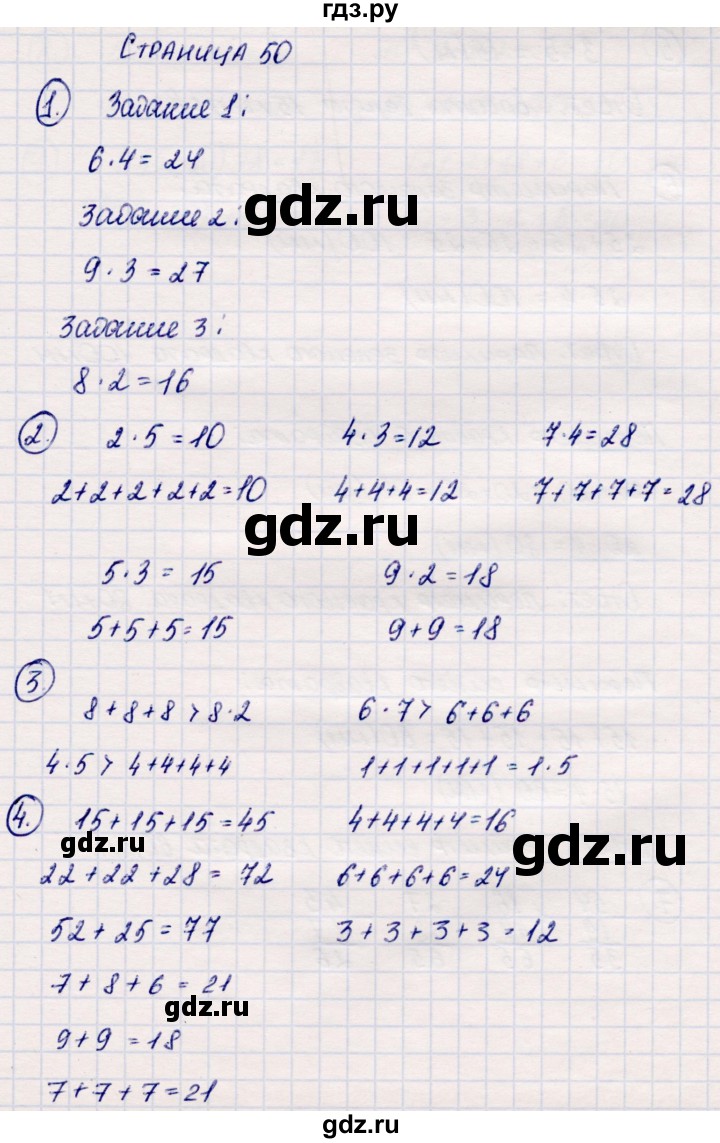 гдз.ру
СТРАНИЦА 50
1. Задание 1:
6·4=24
Задание 2:
gdz.ru
9·3=27
Задание 3:
8·2=16
2. 2·5=10 4·3=12 7·4=28
2+2+2+2+2=10 4+4+4=12 7+7+7+7=28
gdz.ru
5·3=15 9·2=18
5+5+5=15 9+9=18
3.
8+8+8>8·2 6·7>6+6+6
4·5>4+4+4+4 1+1+1+1+1=1·5
4. 15+15+15=45 4+4+4+4=16
gdz.ru gdz.ru
22+22+28=72 6+6+6+6=24
52+25=77 3+3+3+3=12
7+8+6=21
gdz.ru
9+9=18
7+7+7=21
gdz.ru